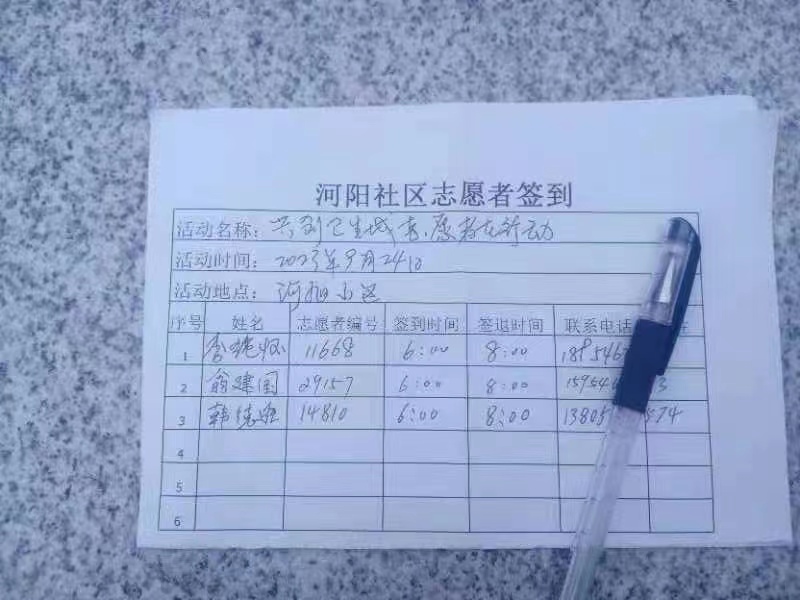 河阳社区志愿者签到
活动名称：共创卫生城市，志愿者在行动
活动时间：2023年9月24日
活动地点：河阳小区
序号 姓名 志愿者编号 签到时间 签退时间 联系电话
1 11668 6:00 8:00
2 翁建国 29157 6:00 8:00
3 韩 14810 6:00 8:00 13805 574
4
5
6